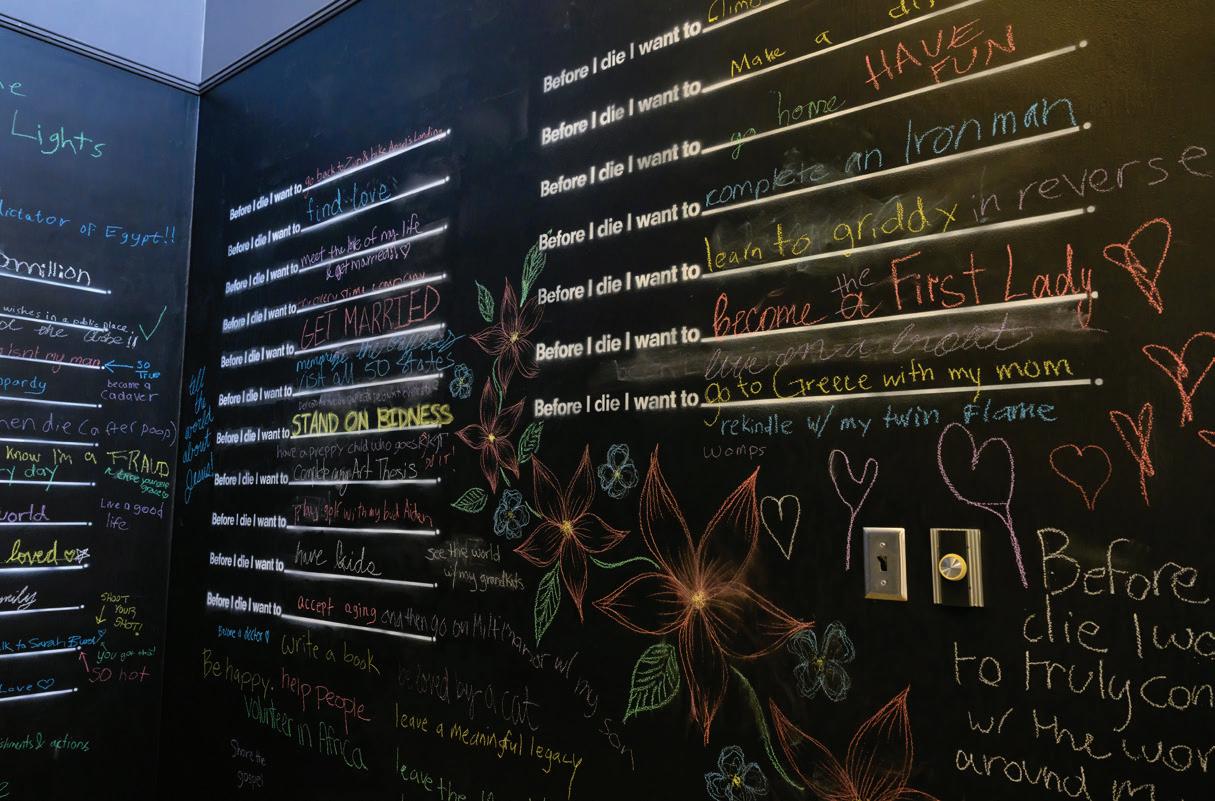 Lights
dictator of Egypt!!
million
wishes in a public place,
the globe!!
isn't my man
SO TRUE
become a
Cadaver
die (after poop)
know I'm a FRAUD
day
world
Live a good
life
loved
SHOOT
YOUR
SHOT!
to Sarah
you got this!
SO hot
Love
& actions
tell
the
world
about
Jesus!
Before I die I want to go back to Zion & hike Angel's Landing
Before I die I want to find love
Before I die I want to meet the love of my life
& get married!!
Before I die I want to
Before I die I want to GET MARRIED
Before I die I want to
visit all 50 States
Before I die I want to STAND ON BIDNESS
have a preppy child who goes
Before I die I want to Complete my Art Thesis
Before I die I want to Play golf with my bud
Before I die I want to have kids
see the world
w/ my grandkids
Before I die I want to accept aging and then go on w/ my son
Become a doctor
write a book
Be happy, help people
volunteer in Africa
Share the
gospel
be loved by a cat
leave a meaningful legacy
leave the
Before I die I want to
Before I die I want to Make a
Before I die I want to go home HAVE FUN
Before I die I want to complete an Ironman
Before I die I want to learn to griddy in reverse
Before I die I want to become the a First Lady
live on a boat
Before I die I want to go to Greece with my mom
rekindle w/ my twin flame
womps
Before
die I
to truly
w/ the
around